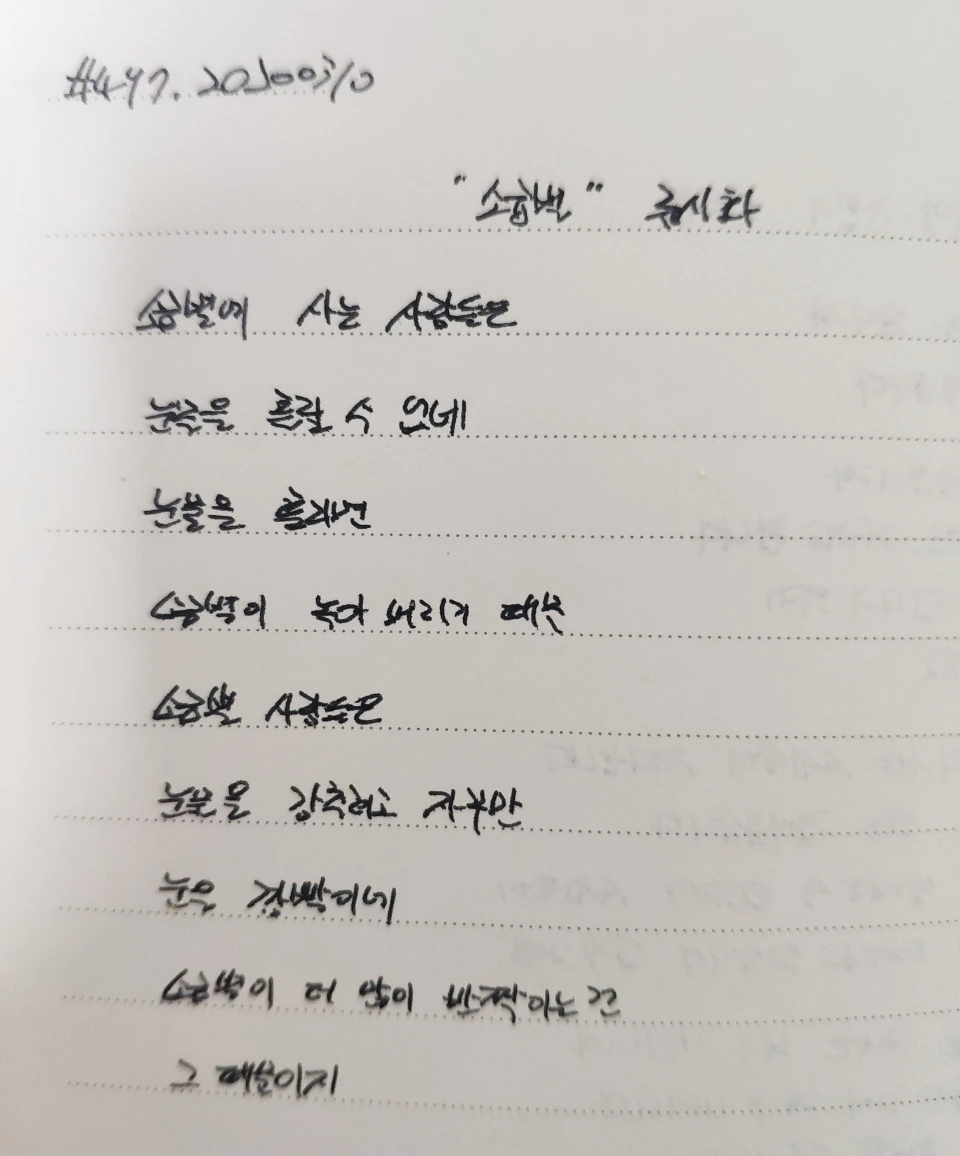 #497. 20200310
"소금별" 류시화
소금별에 사는 사람들은
눈물을 흘릴 수 없네
눈물을 흘리면
소금별이 녹아 버리기 때문
소금별 사람들은
눈물을 감추려고 자꾸만
눈을 깜박이네
소금별이 더 많이 반짝이는 건
그 때문이지